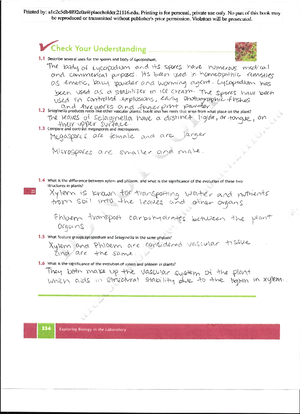 Printed by: a1c2e5db4892e0a@placeholder.21116.edu. Printing is for personal, private use only. No part of this book may
be reproduced or transmitted without publisher's prior permission. Violators will be prosecuted.
Check Your Understanding
1.1 Describe several uses for the spores and body of Lycopodium.
The body of Lycopodium and its spores have numerous medical
and commercial purposes. Its been used in homeopathic remedies
as emetic, baby powder and worming agent. Lycopodium has
been used as a stabilizer in ice cream. The spores have been
used in controlled explosions, early photographic flashes
and fireworks and fingerprint powder.
1.2
The leaves of Selaginella have a distinct ligule, or tongue, on
their upper surface.
1.3 Compare and contrast megaspores and microspores.
Megaspores are female and are larger
Microspores are smaller and male.
1.4 What is the difference between xylem and phloem, and what is the significance of the evolution of these two
structures in plants?
Xylem is known for transporting water and nutrients
from soil into the leaves and other organs
Phloem transport carbohydrates between the plant
organs.
1.5 What feature groups Lycopodium and Selaginella in the same phylum?
Xylem and Phloem are considered vascular tissue
and are the same.
1.6 What is the significance of the evolution of xylem and phloem in plants?
They both make up the vascular system of the plant
which aids in structural stability due to the lignin in xylem.
334 Exploring Biology in the Laboratory